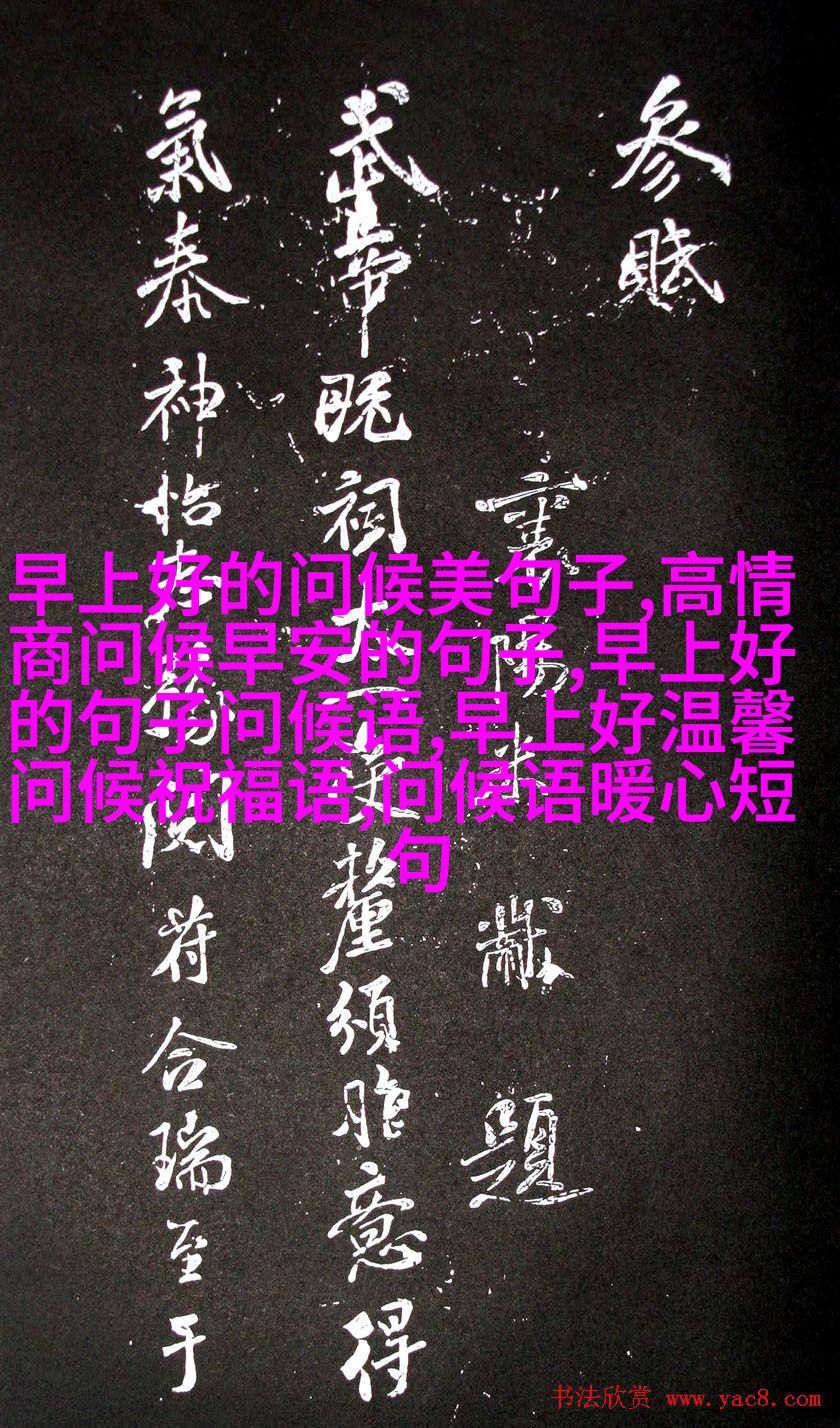 参賦
襄陽米黻題
武帝既祠太一受釐頒胙意得
氣泰神怡春閱符合瑞至于
早上好的问候美句子,高情
商问候早安的句子,早上好
的句子问候语,早上好温馨
问候祝福语,问候语暖心短
句
书法欣赏 www.yac8.com